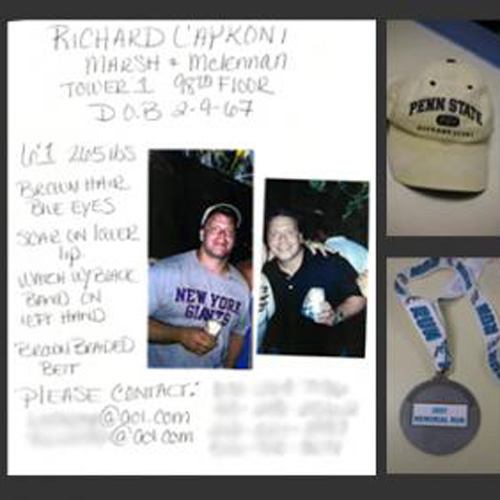 RICHARD CAPRONI
MARSH & Mclennan
TOWER 1 98TH FLOOR
D.O.B 2-9-67
6'1 265 lbs
BROWN HAIR
BLUE EYES
SCAR ON lOWER
lip
WATCH W/ BLACK
BAND ON
lEFT HAND
BROWN BRADED
BELT
PLEASE CONTACT:
@aol.com
@aol.com
NEW YORK
GIANTS
PENN STATE
RUN
RUN
MEMORIAL RUN